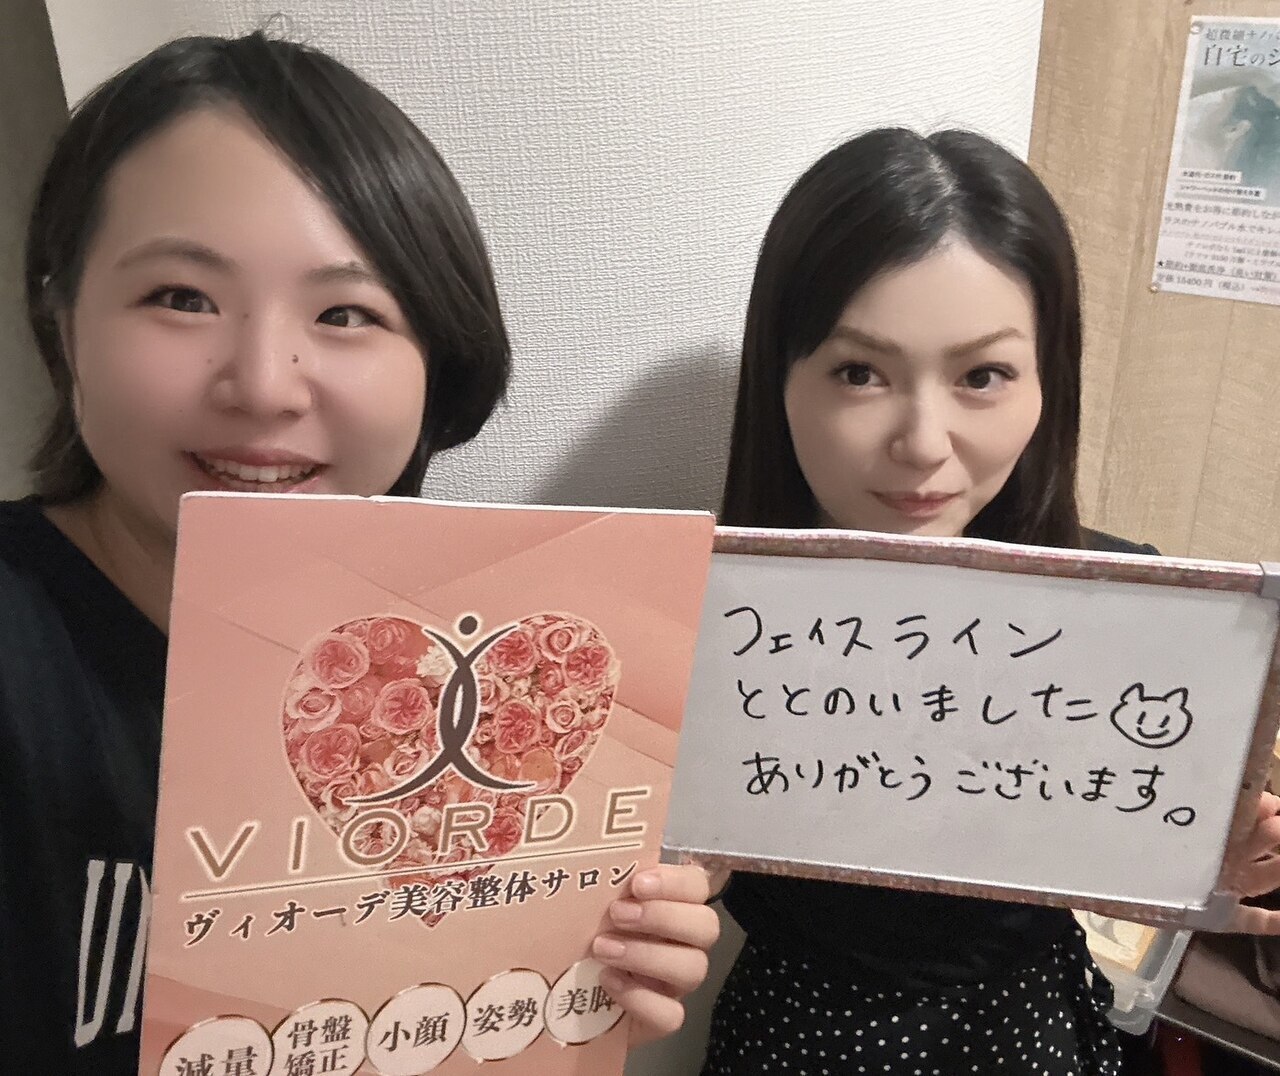 フェイスライン
ととのいました
ありがとうございます。
VIORDE
ヴィオーデ美容整体サロン
減量
骨盤
矯正
小顔
姿勢
美脚
自宅の